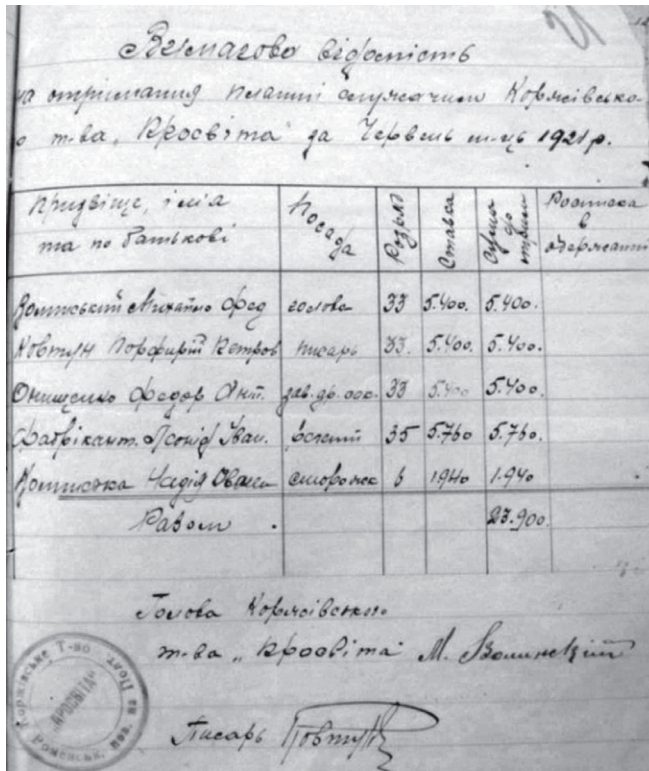 Вимагова відомість
на отримання платні служачими Коржівсько-
о т-ва „Просвіта" за Червень м-ць 1921 р.
призвіще, імя та по батькові Посада Розряд Ставка Сума до отрим. Росписка в одержанні
Волинський Михайло Фед голова 33 5.400. 5.400.
Ковтун Порфирій Петров писарь 33. 5.400. 5.400.
Онищенко Федор Ант. зав. др. 33 5.400 5.400.
Фабрікант. Леонід Іван. 35 5.760 5.760.
Надія сторожек 6 1.940 1.940
Разом 23.900.
Голова Коржівського
т-ва „Просвіта" М. Волинский
Писарь Ковтун
Коржівське Т-во „ПРОСВІТА" Роменськ. пов. на Полт.